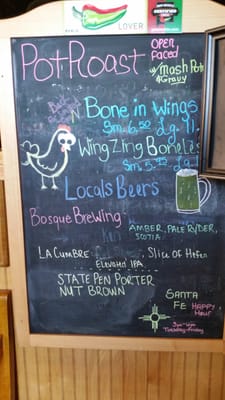 LOVER
Pot Roast
OPEN
FACED
w/ Mash Pot
& Gravy
Bone in Wings
Sm. 6.50 Lg. 11.
Wing Zing Bonel
Sm. 5.95 Lg.
Locals Beers
Bosque Brewing:
AMBER, PALE RYDER,
SCOTIA.
LA CUMBRE: Slice of Hefen
Elevated IPA
STATE PEN PORTER
NUT BROWN
SANTA
FE
HAPPY
HOUR
3pm-6pm
Tuesday-Friday